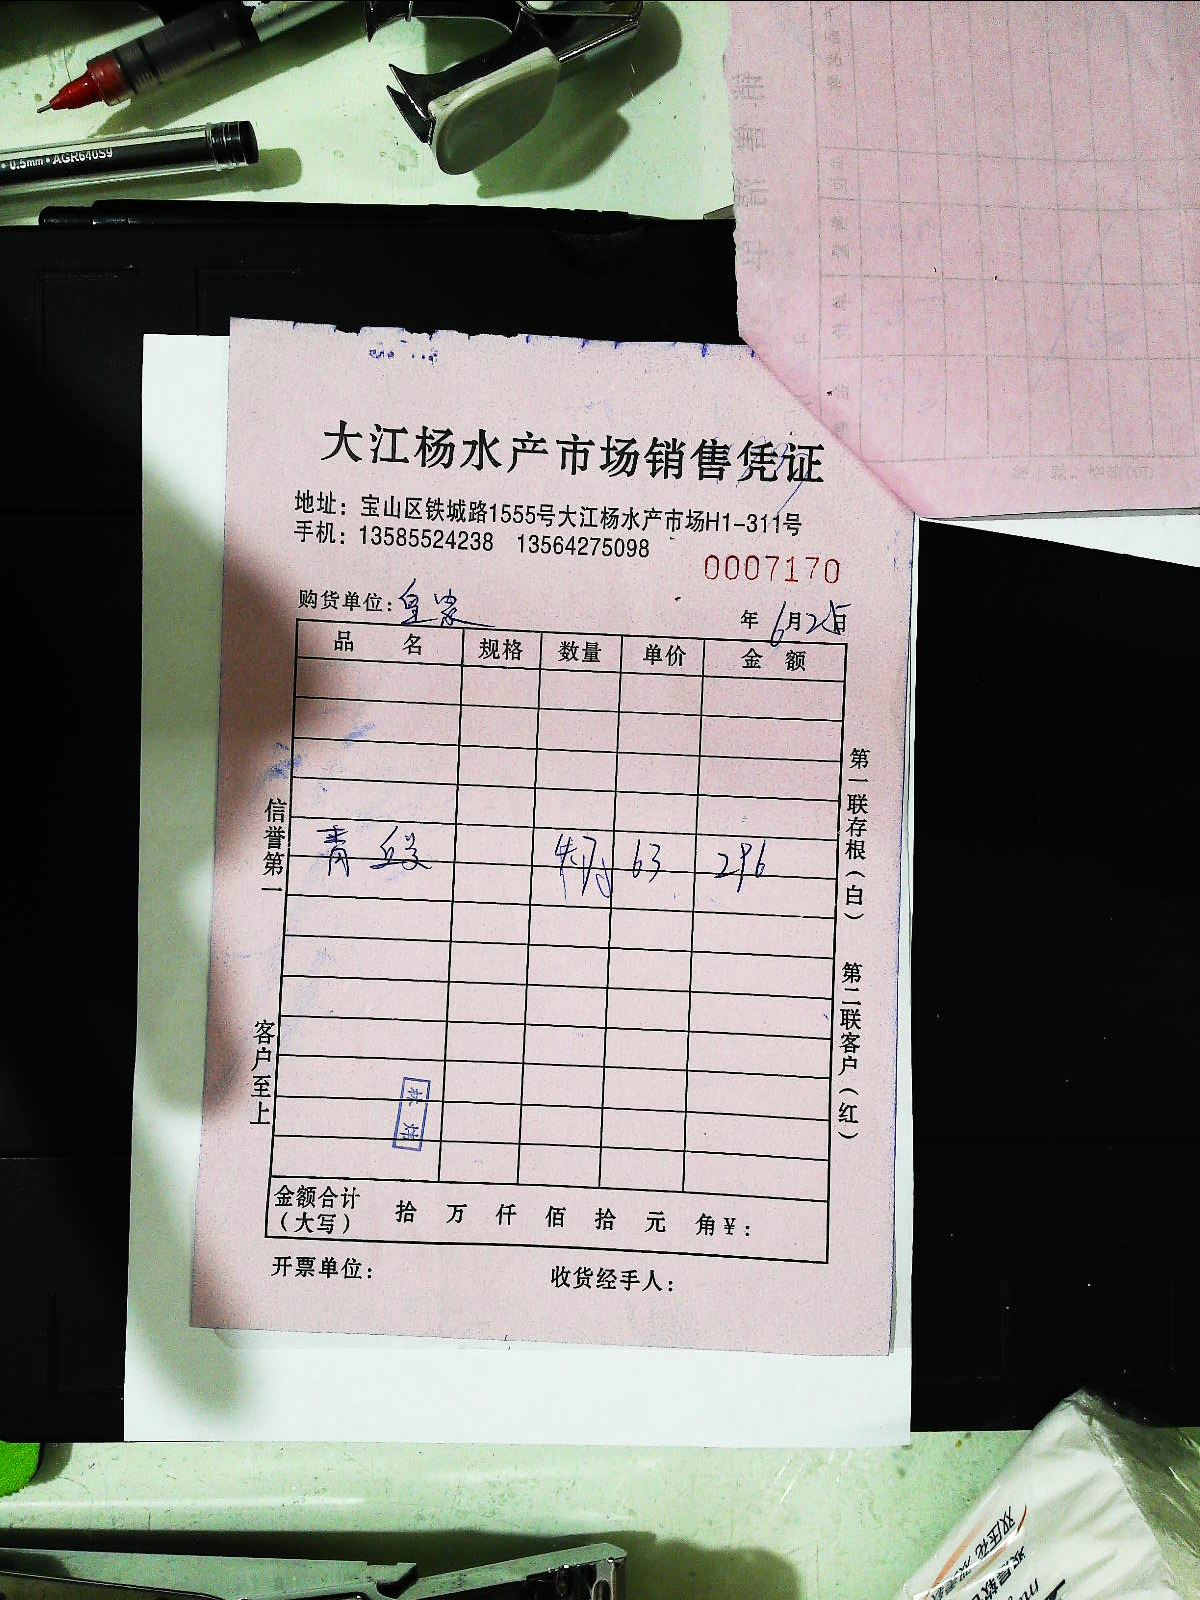 0.5mm•AGR640S9
大江杨水产市场销售凭证
地址：宝山区铁城路1555号大江杨水产市场H1-311号
手机：13585524238 13564275098
0007170
购货单位：皇家 年 6月25日
品 名 规格 数量 单价 金 额
青 63 296
信誉第一
客户至上
第一联存根（白）
第二联客户（红）
金额合计（大写） 拾 万 仟 佰 拾 元 角￥：
开票单位： 收货经手人：